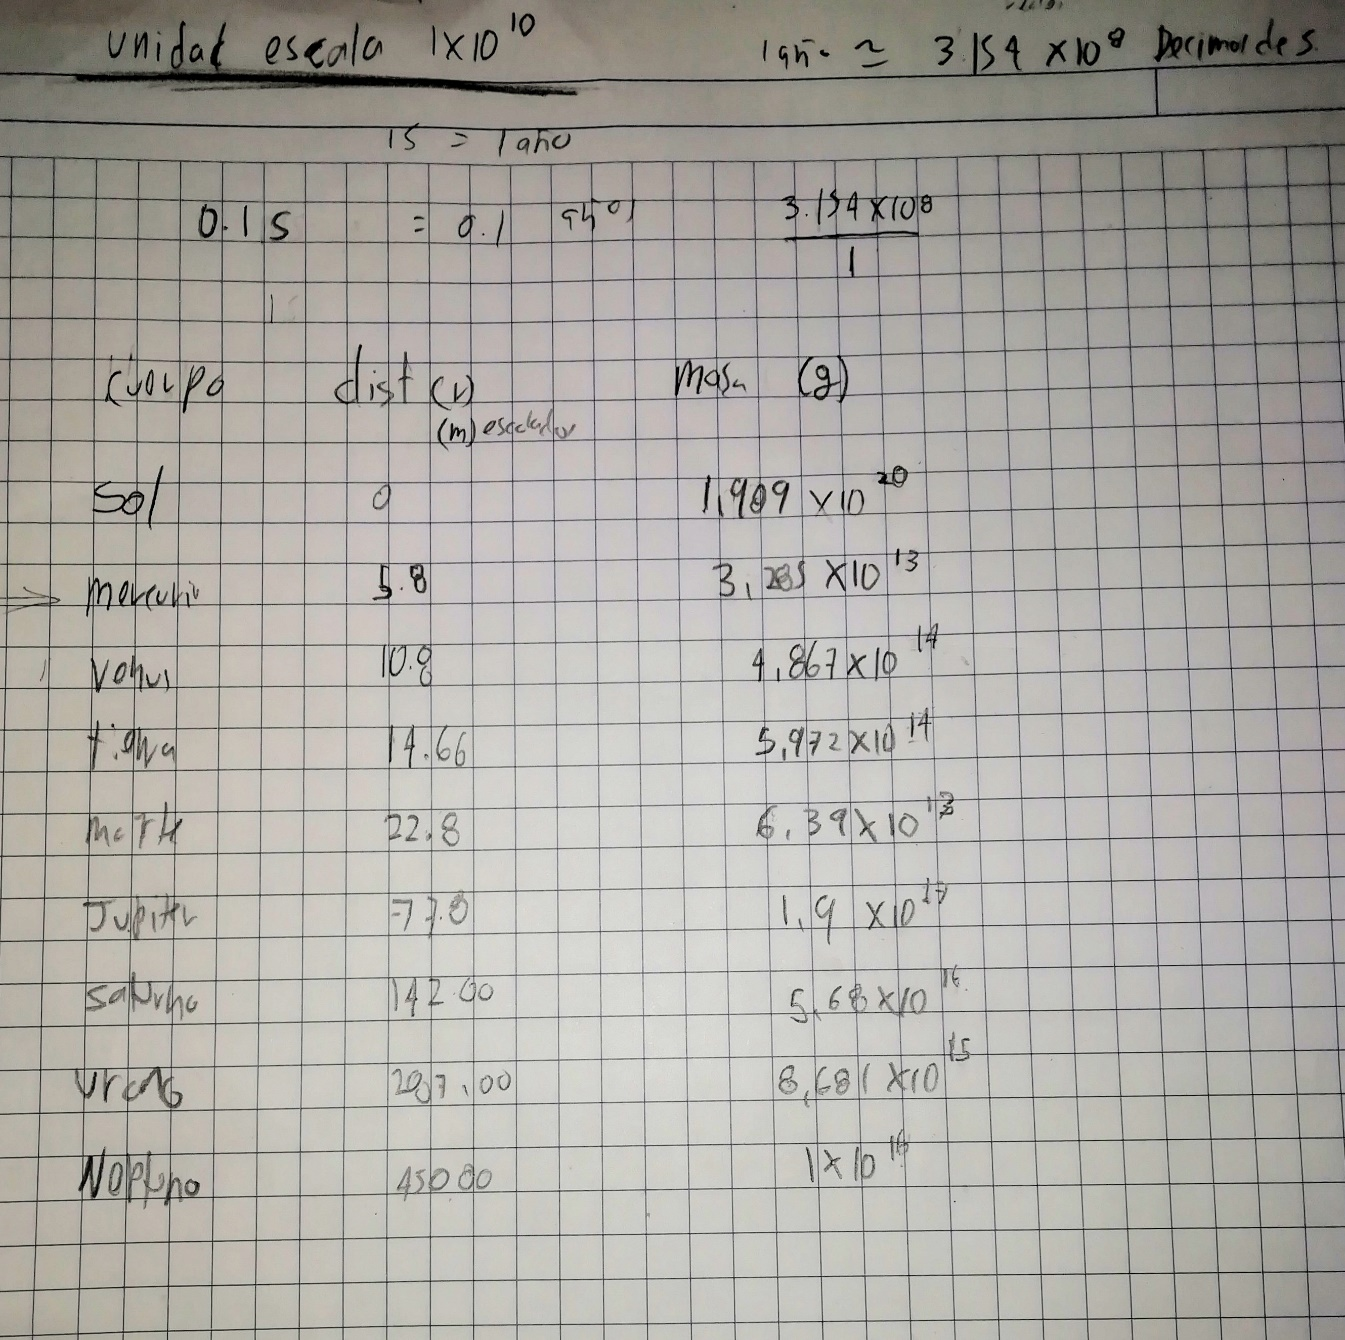 unidad escala 1x10¹⁰ 1 año ≃ 3.154 x10⁸ Decimas de s.
1s = 1 año
0.1 s = 0.1 años 3.154 x10⁸
1
Cuerpo dist (r) masa (g)
(m) escalador
Sol 0 1,989 x10²⁰
mercurio 5.8 3,285 x10¹³
Venus 10.8 4,867x10¹⁴
tierra 14.66 5,972x10¹⁴
marte 22.8 6,39x10¹³
Jupiter 77.8 1,9 x10¹⁷
saturno 142.00 5,68x10¹⁶
urano 287,00 8,681 x10¹⁵
Neptuno 450.00 1x10¹⁶